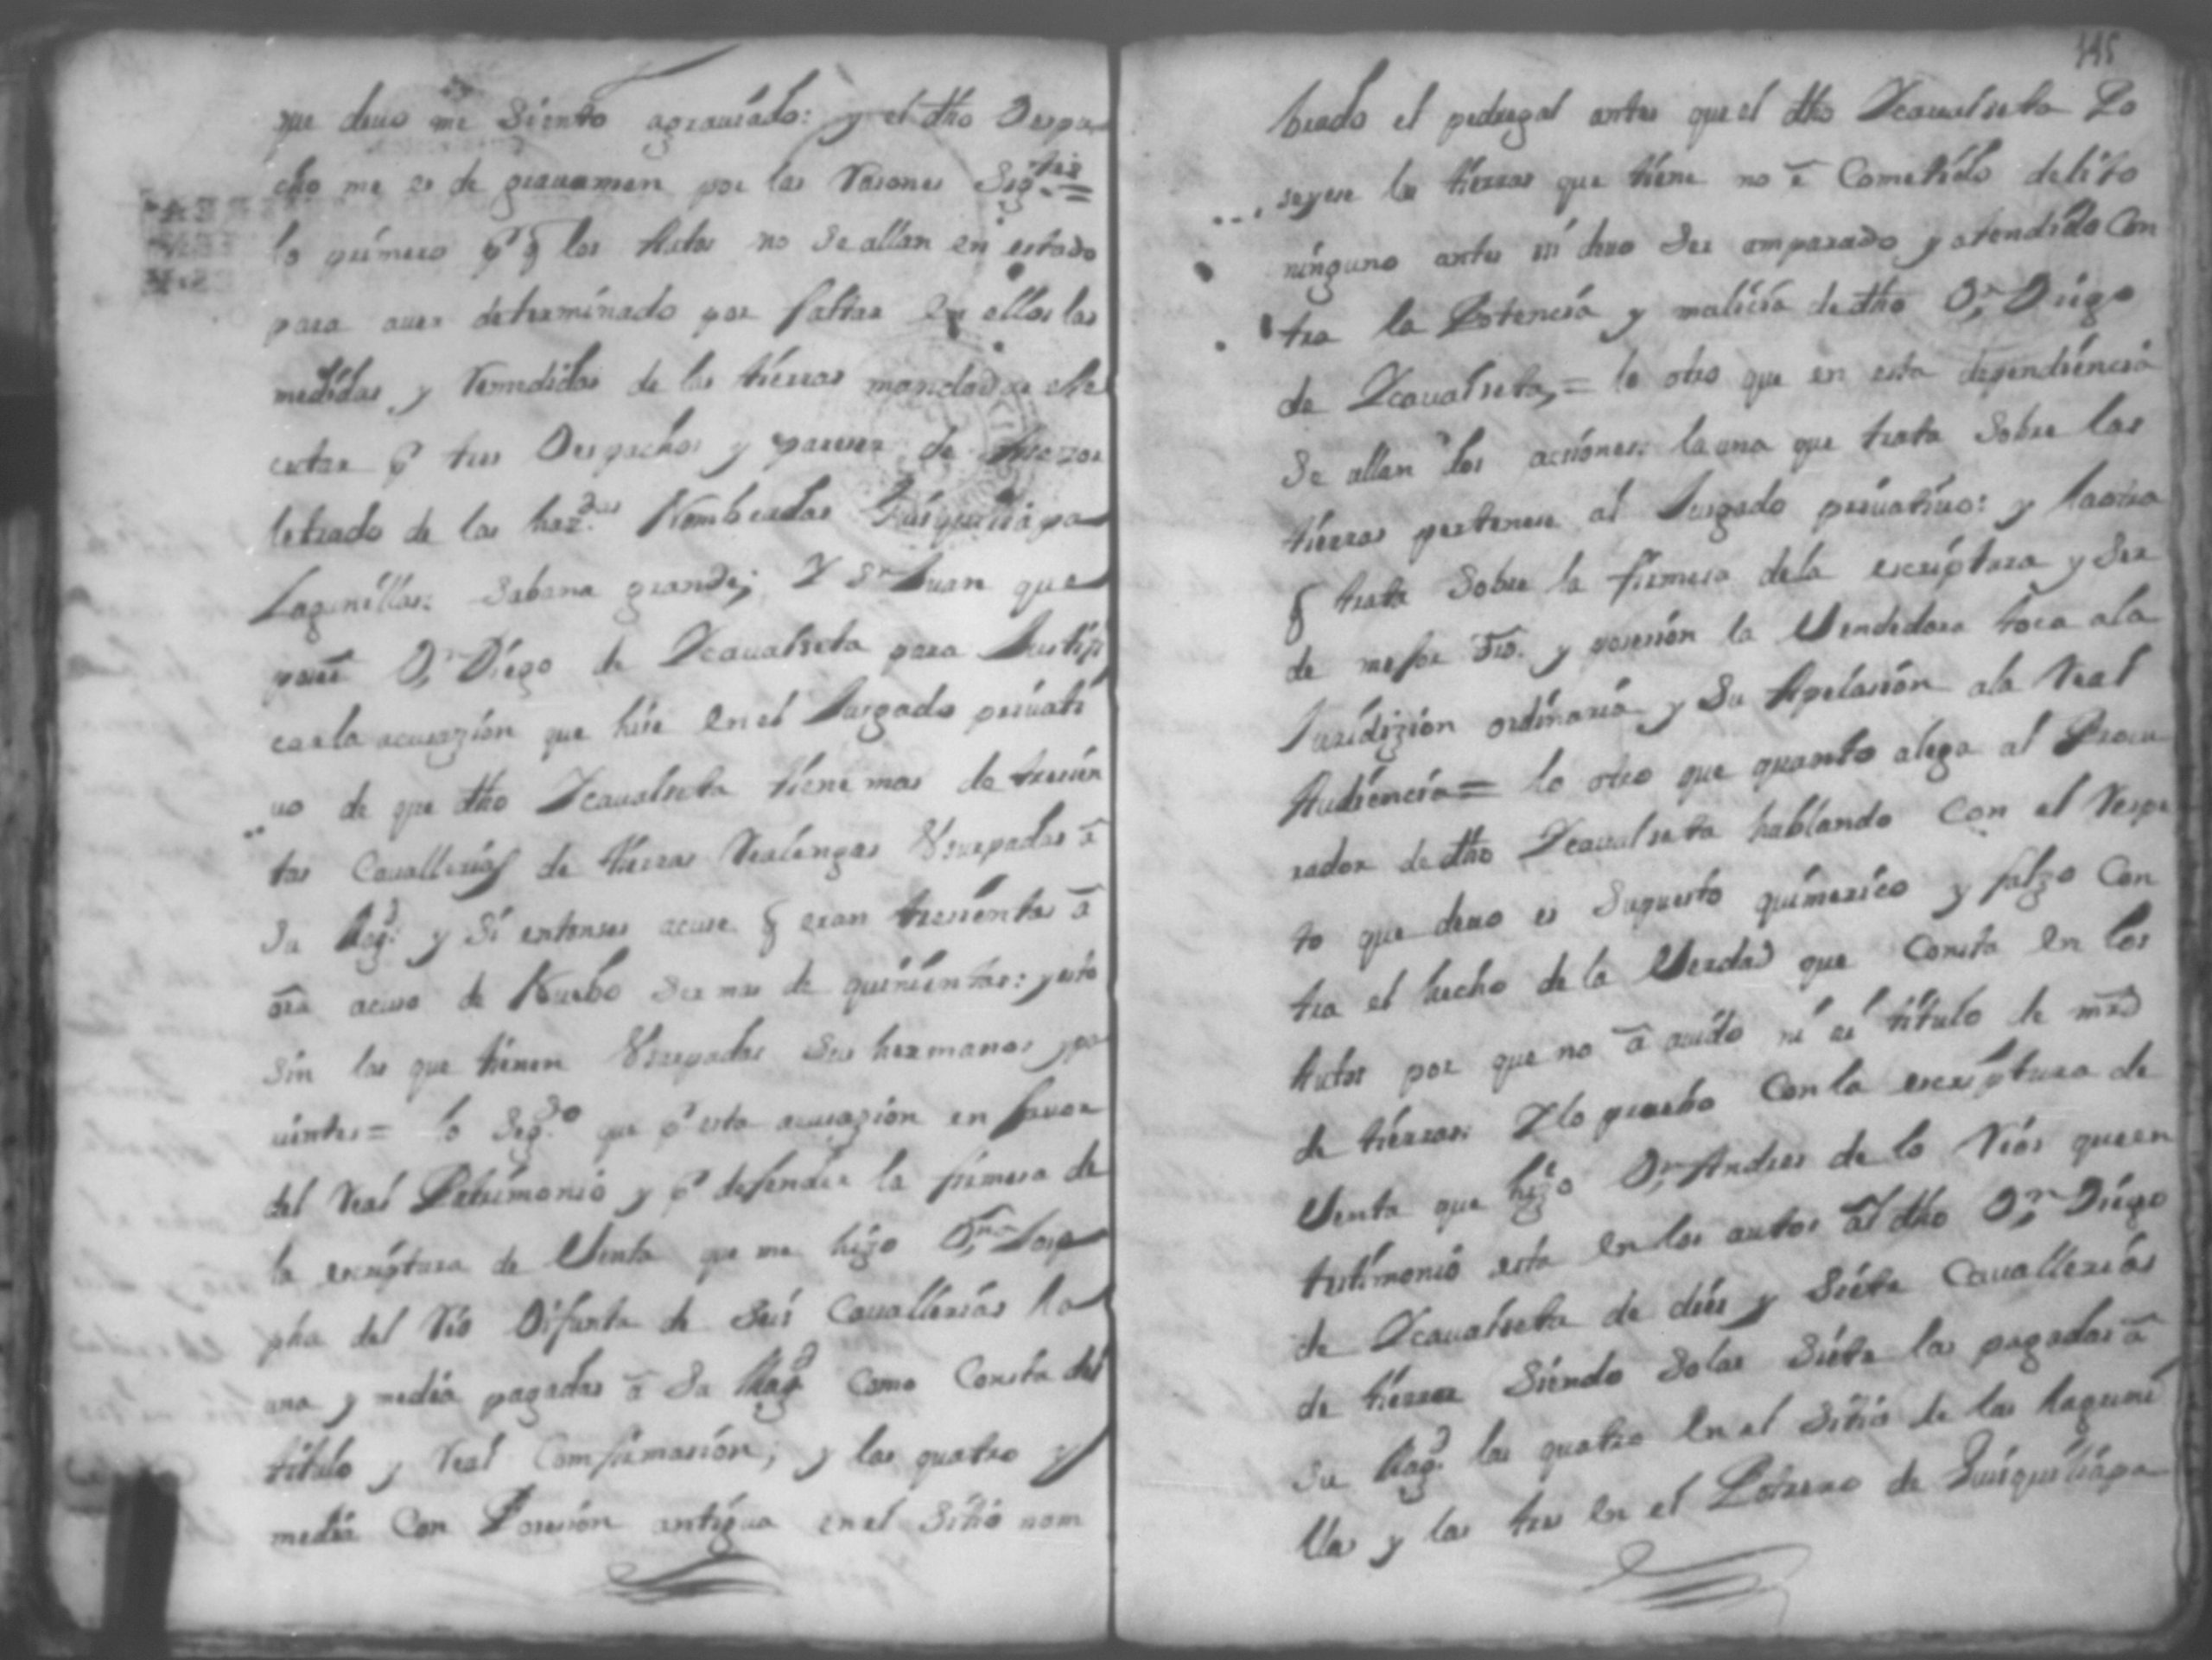 que deuo me siento agrauiado: y el dho Despa
cho me es de grauamen por las rasones Sig.tes =
lo primero p.r q los Autos no se allan en estado
para auer determinado por faltar en ellos las
medidas y remedidas de las tierras mandadas exe
cutar p.r tres Despachos y pareser de Asesor
letrado de las haz.das Nombradas Guisquiliapa
Lagunillas: Sabana grande; Y S.n Juan que
posee D.n Diego de Ycaualseta para Justifi
car la acusazion que hise en el Jusgado priuati
uo de que dho Ycaualseta tiene mas de tresien
tas Cauallerias de tierras Realengas Vsurpadas â
Su Mag.d y Si entonses acuse q eran tresientas â
ora acuso de Nuebo Ser mas de quinientas: y esto
Sin las que tienen Vsurpadas Sus hermanos y pa
rientes = lo Seg.do que p.r esta acusazion en fauor
del Real Patrimonio y p.r defender la firmesa de
la escriptura de Venta que me hizo D.a Jose
pha del Rio Difunta de Seis Cauallerias la
una y media pagadas â Su Mag.d Como Consta del
titulo y Real Comfirmasion; y las quatro y
media Con Posesion antigua en el Sitio nom
145
brado el pedregal antes que el dho Ycaualseta Po
seyese las tierras que tiene no ê Cometido delito
ninguno antes si deuo Ser amparado y atendido Con
tra la Potencia y malisia de dho D.n Diego
de Ycaualseta, = lo otro que en esta dependiencia
Se allan dos acsiones: la una que trata Sobre las
tierras pertenese al Jusgado priuatiuo: y la otra
q trata Sobre la firmesa de la escriptura y Ser
de mejor Tro. y posesion la Vendedora toca a la
Juridizion ordinaria y Su Apelasion a la Real
Audiencia = lo otro que quanto alega al Procu
rador de dho Ycaualseta hablando Con el Respe
to que deuo es Supuesto quimerico y falzo Con
tra el hecho de la Verdad que Consta en los
Autos por que no â auido ni ai titulo de mrd
de tierras: Y lo prueba Con la escriptura de
Venta que hizo D.n Andres de lo Rios que en
testimonio esta en los autos al dho D.n Diego
de Ycaualseta de dies y Siete Cauallerias
de tierras Siendo Solas Siete las pagadas â
Su Mag.d las quatro en el Sitio de las laguni
llas y las tres en el Potrero de Guisquiliapa